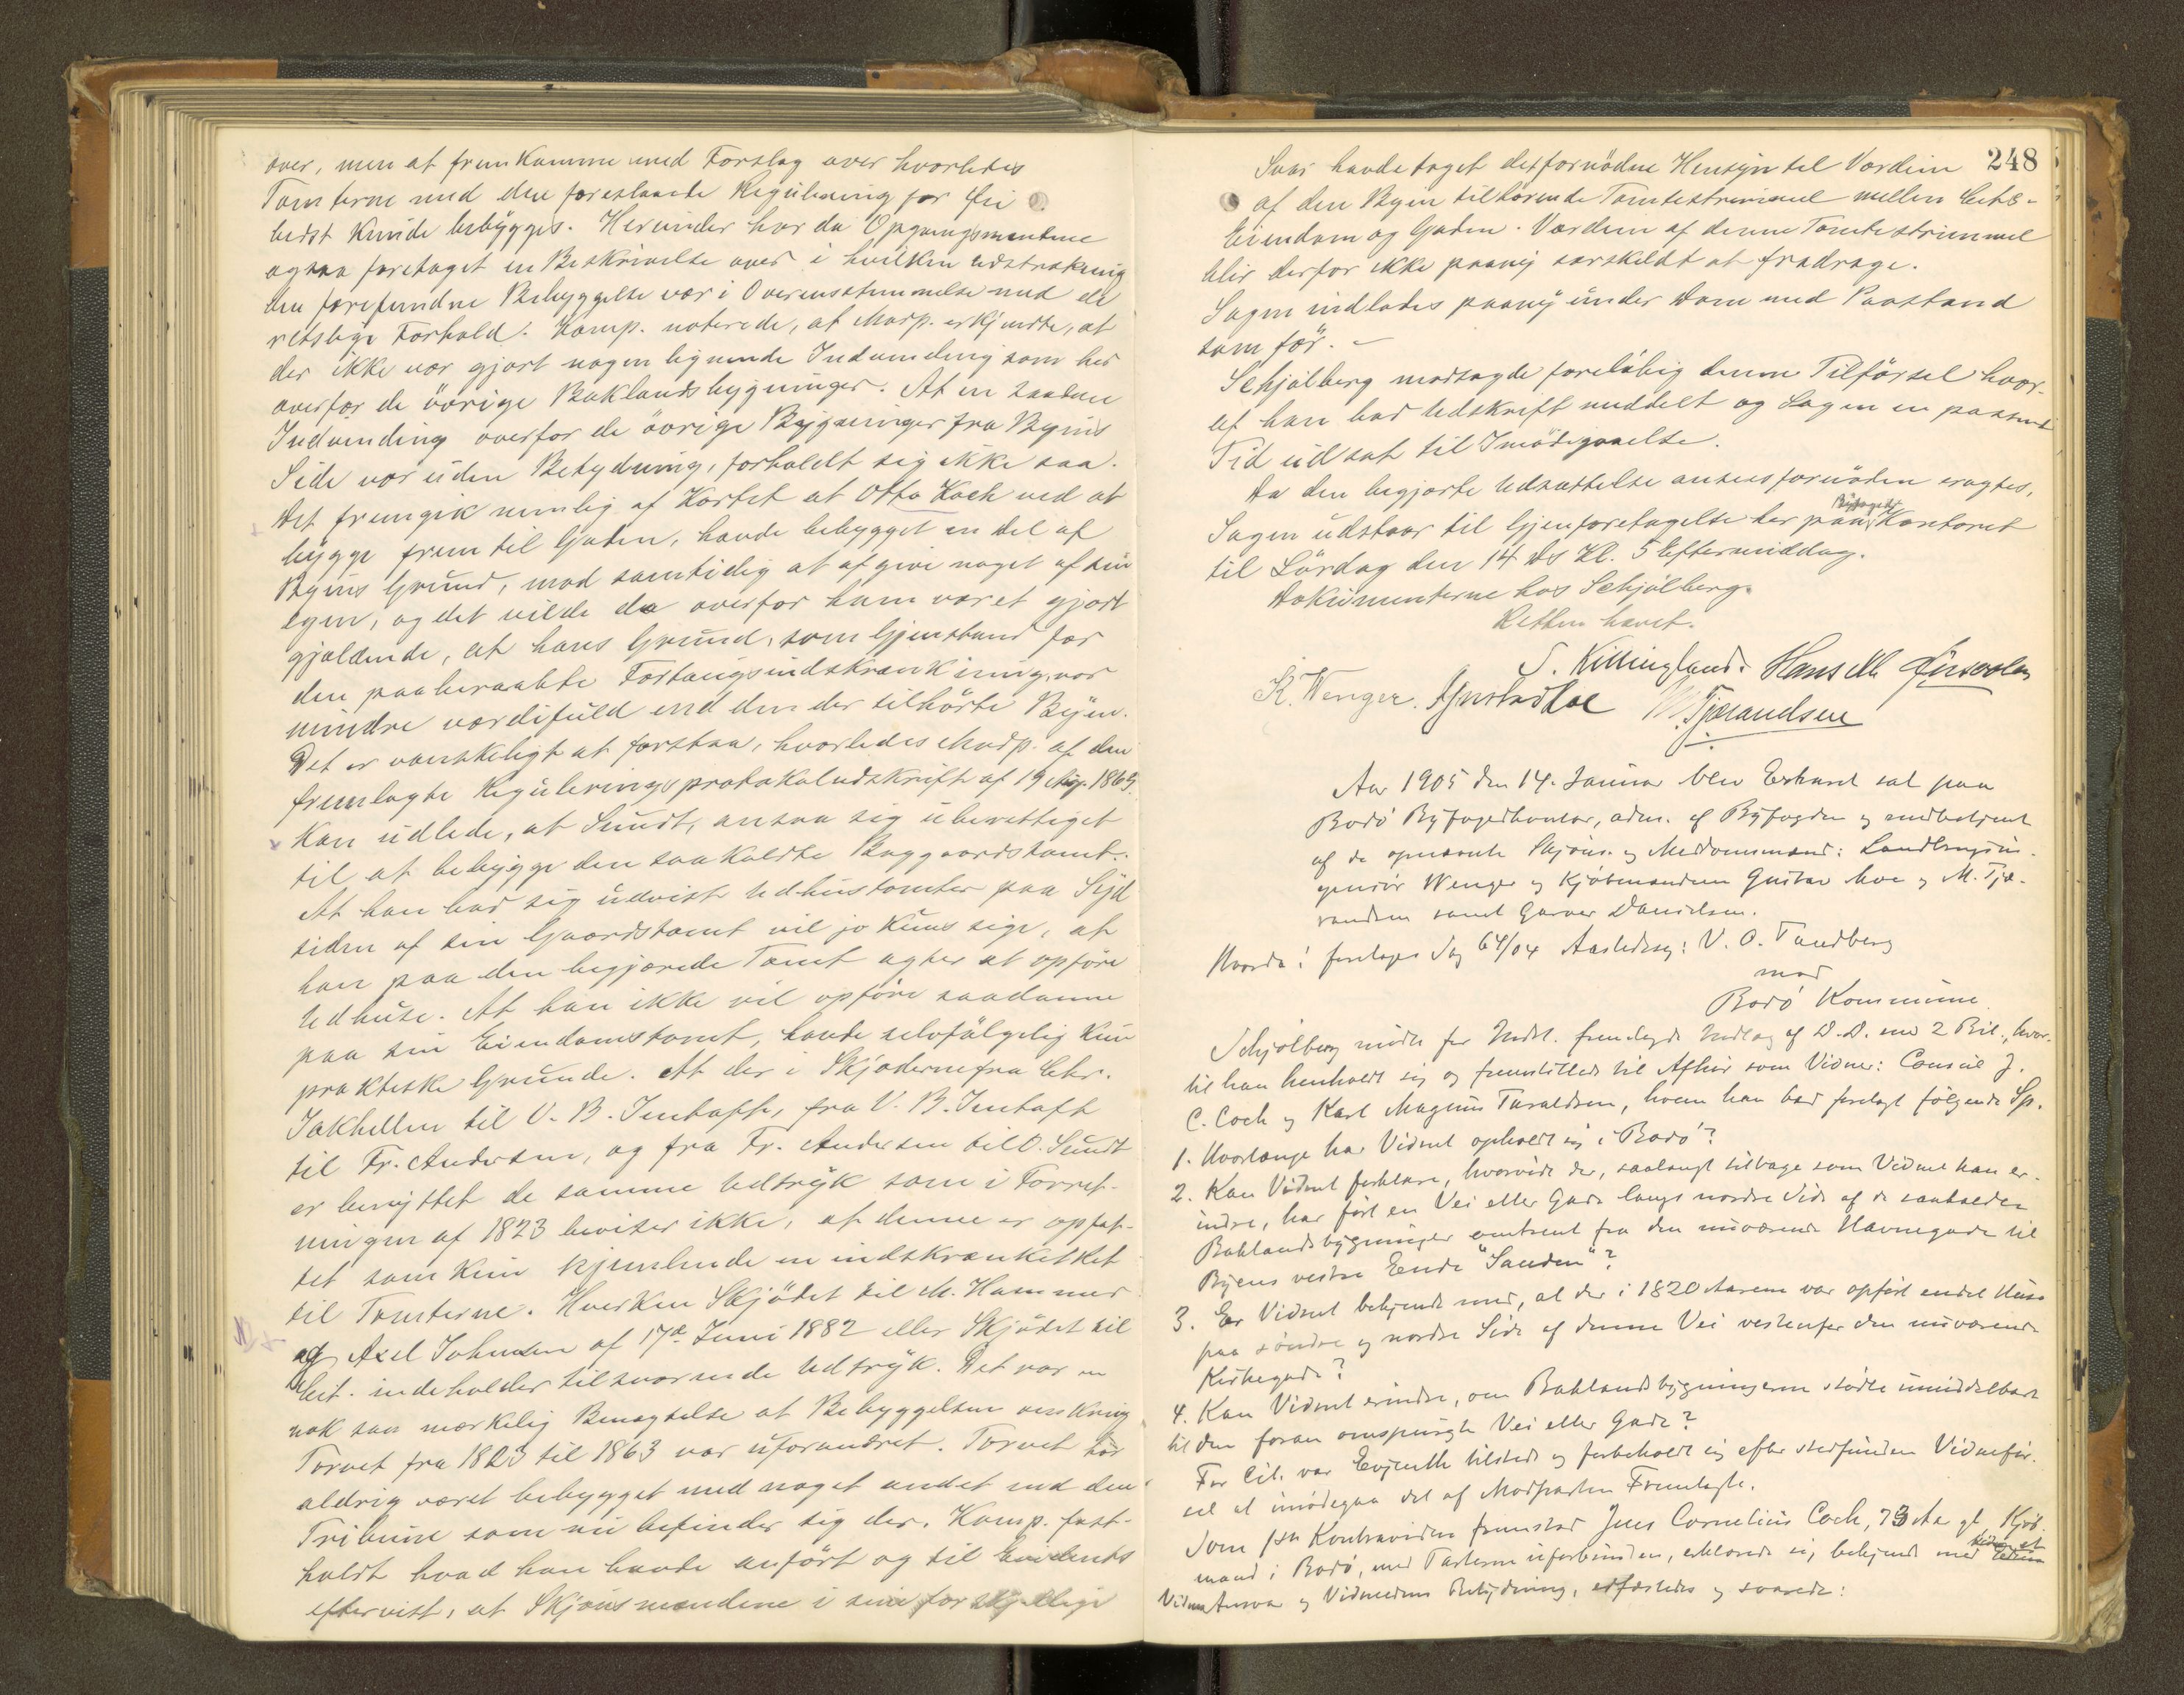 over, men at fremkomme med Forslag over hvorledes
Tomterne med den foreslaaede Regulering for Øie
bedst kunde bebygges. Herunder har da Opgangsmændene
ogsaa foretaget en Beskrivelse over i hvilken Udstrækning
den forefundne Bebyggelse var i Overensstemmelse med de
retslige Forhold. Komp. noterede, at Modp. erkjendte, at
der ikke var gjort nogen lignende Indvending som her
overfor de övrige Baklandsbygninger. At en saadan
Indvending overfor de övrige Bygninger fra Byens
Side var uden Betydning, forholdt sig ikke saa.
Det fremgik nemlig af Kartet at Otto Koch ved at
bygge frem til Gaden, havde bebygget en Del af
Byens Grund, mod samtidig at afgive noget af sin
egen, og det vilde da overfor ham været gjort
gjældende, at hans Grund, som Gjenstand for
den paaberaabte Fortougsindskrænkning, var
mindre værdifuld end den der tilhörte Byen.
Det er vanskeligt at forstaa, hvorledes Modp. af den
fremlagte Reguleringsprotokoludskrift af 19 Aug. 1863.
kan udlede, at Sundt, ansaa sig uberettiget
til at bebygge den saakaldte Baggaardstomt.
At han bad sig udvist Udhustomter paa Syd
siden af sin Gaardstomt vil jo kuns sige, at
han paa den begjærede Tomt agter at opföre
Udhuse. At han ikke vil opföre saadanne
paa sin Eiendomstomt, havde selvfölgelig kun
praktiske Grunde. At der i Skjöderne fra Chr.
Jakhellen til V. B. Jentoft, fra V. B. Jentoft
til Fr. Andersen, og fra Fr. Andersen til O. Sundt
er benyttet de samme Udtryk som i Forret-
ningen af 1823 beviser ikke, at denne er opfat-
tet som kun kjendende en indskrænket Ret
til Tomterne. Hverken Skjödet til M. Hammer
og Axel Johnsen af 17de Juni 1882 eller Skjödet til
Cit. indeholder tilsvarende Udtryk. Det var en
nok saa mærkelig Benægtelse at Bebyggelsen omkring
Torvet fra 1823 til 1863 var uforandret. Torvet har
aldrig været bebygget med noget andet end den
Tribune som nu befinder sig der. Komp. fast-
holdt hvad han havde anfört og til Evidents
eftervist, at Skjönsmændene i sine forskjellige
248
Svar havde taget det fornödne Hensyn til Værdien
af den Byen tilhörende Tomtestrimmel mellem Cits-
Eiendom og Gaden. Værdien af denne Tomtestrimmel
blir derfor ikke paany særskildt at fradrage.
Sagen indlodes paany under Dom med Paastand
som för. –
Schjölberg modsagde foreløbig denne Tilförsel hvor-
af han bad Udskrift meddelt og Sagen en passende
Tid udsat til Imödegaaelse.
Da den begjærte Udsættelse ansees fornöden eragtes,
Sagen udstaar til Gjenforetagelse her paa Byfogedkontoret
til Lördag den 14 ds Kl. 5 Eftermiddag.
Dokumenterne hos Schjölberg.
Retten hævet.
S. Killingland. Hans M.
K. Wenger. Gustav Moe M. Tjærandsen
Aar 1905 den 14. Januar blev Extraret sat paa
Bodö Byfogedkontor, adm. af Byfogden og medbetjent
af de opnævnte Skjöns- og Meddomsmænd: Landbrugsin-
geniör Wenger og Kjöbmændene Gustav Moe og M. Tjæ-
randsen samt Garver Danielsen.
Hvorda: foretoges Sag 64/04 Aastedssag: V. O. Tandberg
mod
Bodö Kommune
Schjölberg mödte for Indst. fremlagde Indlæg af D.D. med 2 Bil., hvor-
til han henholdt sig og fremstilled til Afhör som Vidner: Consul J.
C. Coch og Karl Magnus Taraldsen, hvem han bad forelagt fölgende Sp.
1. Hvorlænge har Vidnet opholdt sig i Bodö?
2. Kan Vidnet forklare, hvorvidt der, saalangt tilbage som Vidnet kan er-
indre, har fört en Vei eller Gade langs nordre Side af de saakaldte
Baklandsbygninger omtrent fra den nuværende Havnegade til
Byens vestre Ende "Sanden"?
3. Er Vidnet bekjendt med, at der i 1820 Aarene var opfört endel Huse
paa söndre og nordre Side af denne Vei vestenfor den nuværende
Kirkegade?
4. Kan Vidnet erindre, om Baklandsbygningerne stödte umiddelbart
til den foran omspurgte Vei eller Gade?
For Cit. var Evjenth tilstede og forbeholdt sig efter stedfunden Vidneför-
sel at imödegaa det af Modparten Fremlagte.
Som 1ste Kontravidne fremstod Jens Cornelius Coch, 73 Aar gl. Kjöb-
mand i Bodö, med Parterne uforbunden, erklærede sig bekjendt med
Vidneansvar og Vidneedens Betydning, edfæstedes og svarede: